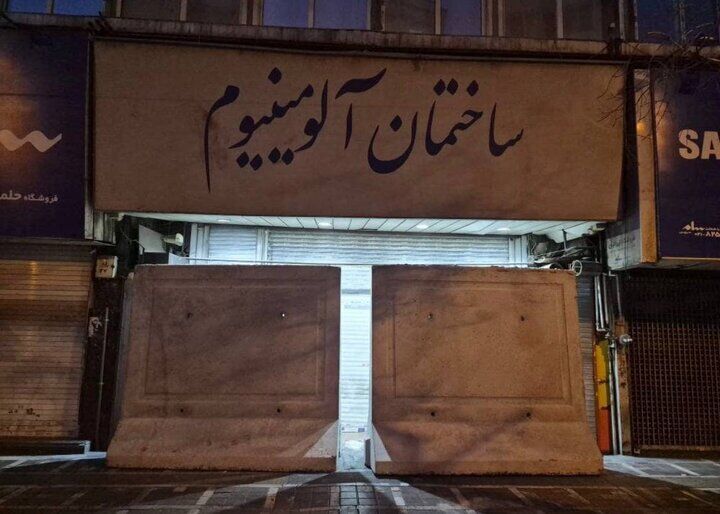 ساختمان آلومینیوم
فروشگاه حلم
SA